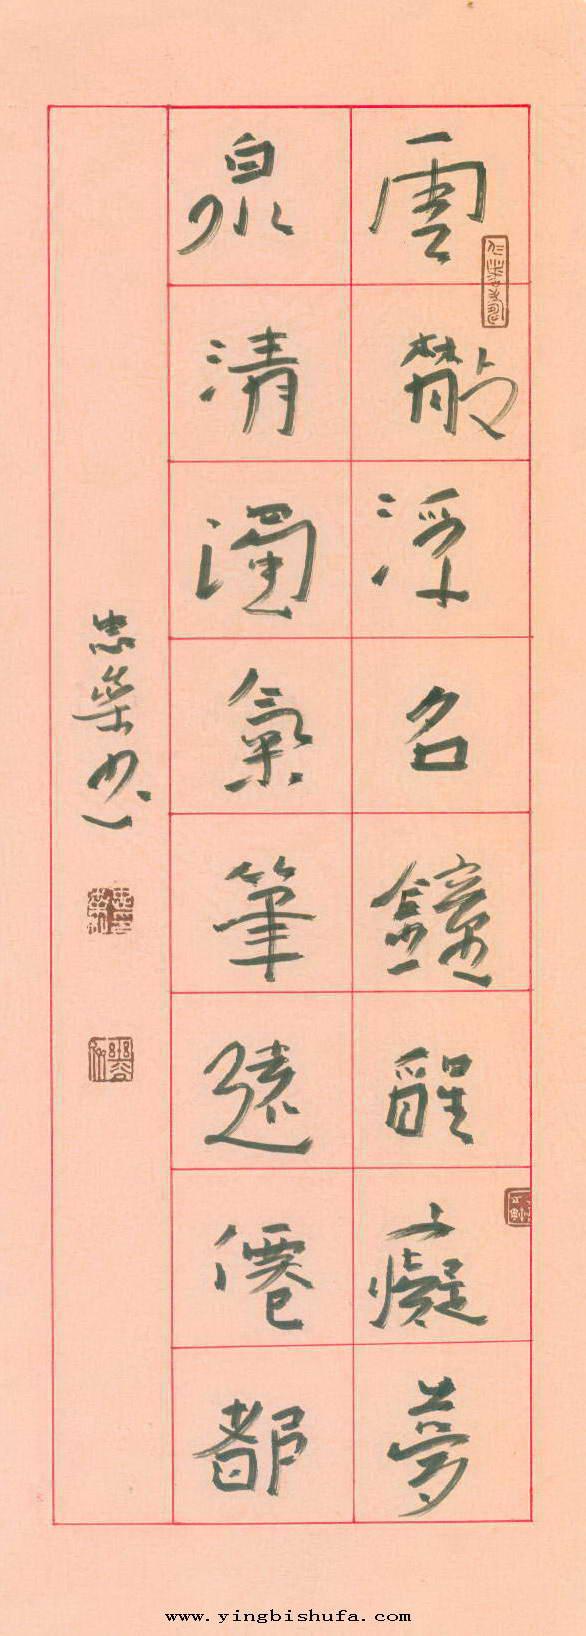 雲散浮名鐘醒癡夢
泉清濁氣筆遠僊都
忠榮书
www.yingbishufa.com